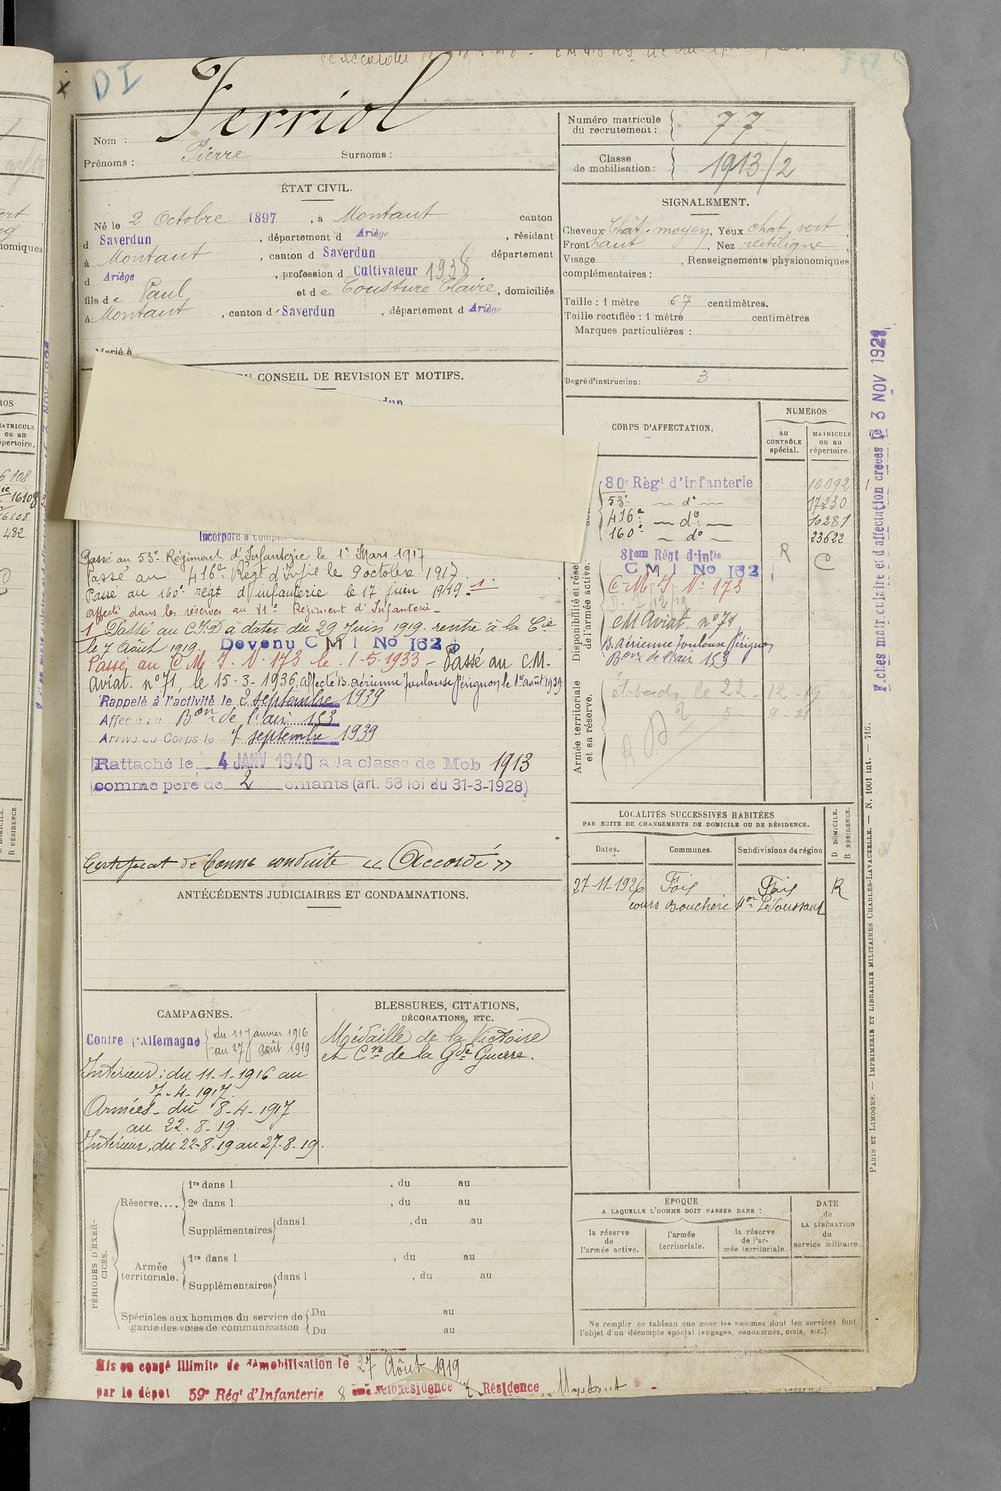 DI
Ferriol
Nom :
Prénoms : Pierre Surnoms :
ÉTAT CIVIL.
Né le 2 Octobre 1897, à Montaut canton
d Saverdun, département d Ariège, résidant
à Montaut, canton d Saverdun département
d Ariège, profession d Cultivateur 1938
fils de Paul et de Cousture Claire, domiciliés
à Montaut, canton d Saverdun, département d Ariège
Marié à
CONSEIL DE REVISION ET MOTIFS.
Passé au 53e Régiment d'Infanterie le 1er Mars 1917
Passé au 416e Régt d'Infie le 9 octobre 1917.
Passé au 160e régt d'infanterie le 17 juin 1919. 1.
Affecté dans les réserves au 81e Régiment d'Infanterie
1 Passé au C.I.D à dater du 29 Juin 1919. rentré à la Cie
le 7 Août 1919. Devenu C M I No 162
Passé au C.M.I. N. 173 le 1-5.1933 - Passé au C.M.
Aviat. n° 71, le 15-3-1936, affecté B. Aérienne Toulouse Pérignon le 1er août 1939
Rappelé à l'activité le 2 septembre 1939
Affecté au Bon de l'air 153
Arrivé au Corps le 7 septembre 1939
Rattaché le 4 JANV 1940 à la classe de Mob 1913
comme père de 2 enfants (art. 58 loi du 31-3-1928)
Certificat de bonne conduite « Accordé »
ANTÉCÉDENTS JUDICIAIRES ET CONDAMNATIONS.
CAMPAGNES.
Contre l'Allemagne du 11 Janvier 1916
au 27 août 1919
Intérieur : du 11-1-1916 au
7-4-1917.
Armées - du 8-4-1917
au 22-8-19.
Intérieur, du 22-8-19 au 27-8-19.
BLESSURES, CITATIONS,
DÉCORATIONS, ETC.
Médaille de la Victoire
et Cve de la Gde Guerre.
PÉRIODES D'EXERCICES.
Réserve....
1re dans l , du au
2e dans l , du au
Supplémentaires dans l , du au
Armée
territoriale.
1re dans l , du au
Supplémentaires dans l , du au
Spéciales aux hommes du service de
garde des voies de communication
Du au
Du au
Mis en congé illimité de démobilisation le 27 Août 1919
par le dépôt 59e Régt d'Infanterie Résidence Montaut
Numéro matricule
du recrutement : 77
Classe
de mobilisation : 1913/2
SIGNALEMENT.
Cheveux Chât. moyen, Yeux chat. vert
Front haut, Nez rectiligne
Visage , Renseignements physionomiques
complémentaires :
Taille : 1 mètre 67 centimètres.
Taille rectifiée : 1 mètre centimètres
Marques particulières :
Degré d'instruction : 3
CORPS D'AFFECTATION.
NUMÉROS
au
CONTRÔLE
spécial.
MATRICULE
ou au
répertoire.
Disponibilité et réserve
de l'armée active.
80e Régt d'Infanterie 10092
53e — do — 17230
416e — do — 10281
160e — do — 23622
81em Régt d'Infie R C
C M I No 162
C.M.I. N° 173
C M Aviat. n° 71
B. Aérienne Toulouse Pérignon
Bon de l'air 153
Armée territoriale
et sa réserve.
LOCALITÉS SUCCESSIVES HABITÉES
PAR SUITE DE CHANGEMENTS DE DOMICILE OU DE RÉSIDENCE.
Dates.
Communes.
Subdivisions de région
D DOMICILE.
R RÉSIDENCE.
27-11-1926 Foix Foix R
cours Bouchère
ÉPOQUE
A LAQUELLE L'HOMME DOIT PASSER DANS :
la réserve
de
l'armée active.
l'armée
territoriale.
la réserve
de l'armée
territoriale.
DATE
de
LA LIBÉRATION
du
service militaire.
Ne remplir ce tableau que pour les hommes dont les services font
l'objet d'un décompte spécial (engagés, condamnés, omis, etc.)
Fiches matriculaire et d'affectation créées le 3 NOV 1921
PARIS ET LIMOGES. — IMPRIMERIE ET LIBRAIRIE MILITAIRES CHARLES-LAVAUZELLE. — N. 1001 int. — 715.